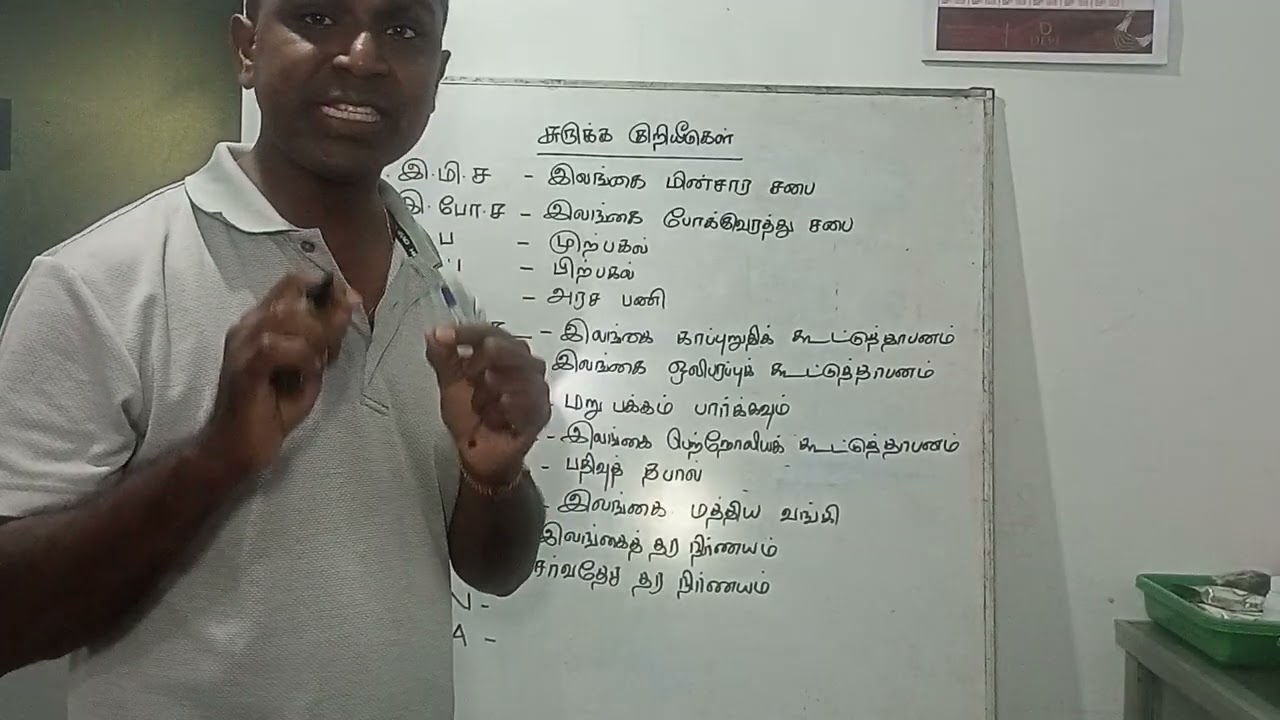 DEVI
சுருக்க குறியீடுகள்
இ.மி.ச - இலங்கை மின்சார சபை
இ.போ.ச - இலங்கை போக்குவரத்து சபை
ப - முற்பகல்
- பிற்பகல்
- அரச பணி
- இலங்கை காப்புறுதிக் கூட்டுத்தாபனம்
இலங்கை ஒலிபரப்புக் கூட்டுத்தாபனம்
- மறு பக்கம் பார்க்கவும்
- இலங்கை பெற்றோலியக் கூட்டுத்தாபனம்
- பதிவுத் தபால்
- இலங்கை மத்திய வங்கி
இலங்கைத் தர நிர்ணயம்
சர்வதேச தர நிர்ணயம்
-
A -